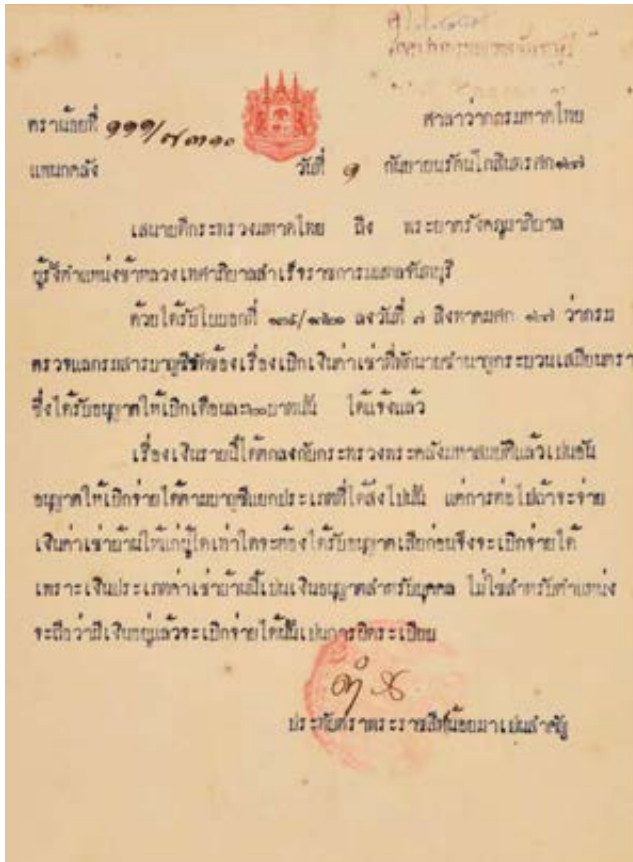 ตราน้อยที่ ๑๑๑/๗๓๑๐
ศาลาว่าการมหาดไทย
แพนกคลัง วันที่ ๑ กันยายน รัตนโกสินทรศก ๑๒๗
เสนาบดีกระทรวงมหาดไทย ถึง พระยาตรังคภูมาภิบาล
ผู้รั้งตำแหน่งข้าหลวงเทศาภิบาลสำเร็จราชการมณฑลจันทบุรี
ด้วยได้รับใบบอกที่ ลงวันที่ ๗ สิงหาคมศก ๑๒๗ ว่ากรม
ตรวจแลกรมสารบาญชีขัดข้องเรื่องเบิกเงินค่าเช่าที่พักนายชำนาญกระบวนเสมียนตรา
ซึ่งได้รับอนุญาตให้เบิกเดือนละ ๒๐ บาทนั้น ได้แจ้งแล้ว
เรื่องเงินรายนี้ได้ตกลงกับกระทรวงพระคลังมหาสมบัติแล้วเปนอัน
อนุญาตให้เบิกจ่ายได้ตามบาญชีแยกประเภทที่ได้ส่งไปนั้น แต่การต่อไปถ้าจะจ่าย
เงินค่าเช่าบ้านให้แก่ผู้ใดเท่าใดจะต้องได้รับอนุญาตเสียก่อนจึงจะเบิกจ่ายได้
เพราะเงินประเภทค่าเช่าบ้านนี้เปนเงินอนุญาตสำหรับบุคคล ไม่ใช่สำหรับตำแหน่ง
จะถือว่ามีเงินอยู่แล้วจะเบิกจ่ายได้นั้นเปนการผิดระเบียบ
ประทับตราพระราชสีห์น้อยมาเปนสำคัญ